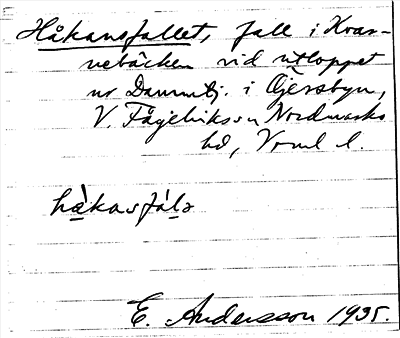 Håkansfallet, fall i Kvar-
nebäcken vid utloppet
ur Dammtj. i Gjersbyn,
V. Fågelviks sn Nordmarks
hd, Vrml l.
håkasfal
E. Andersson 1935.